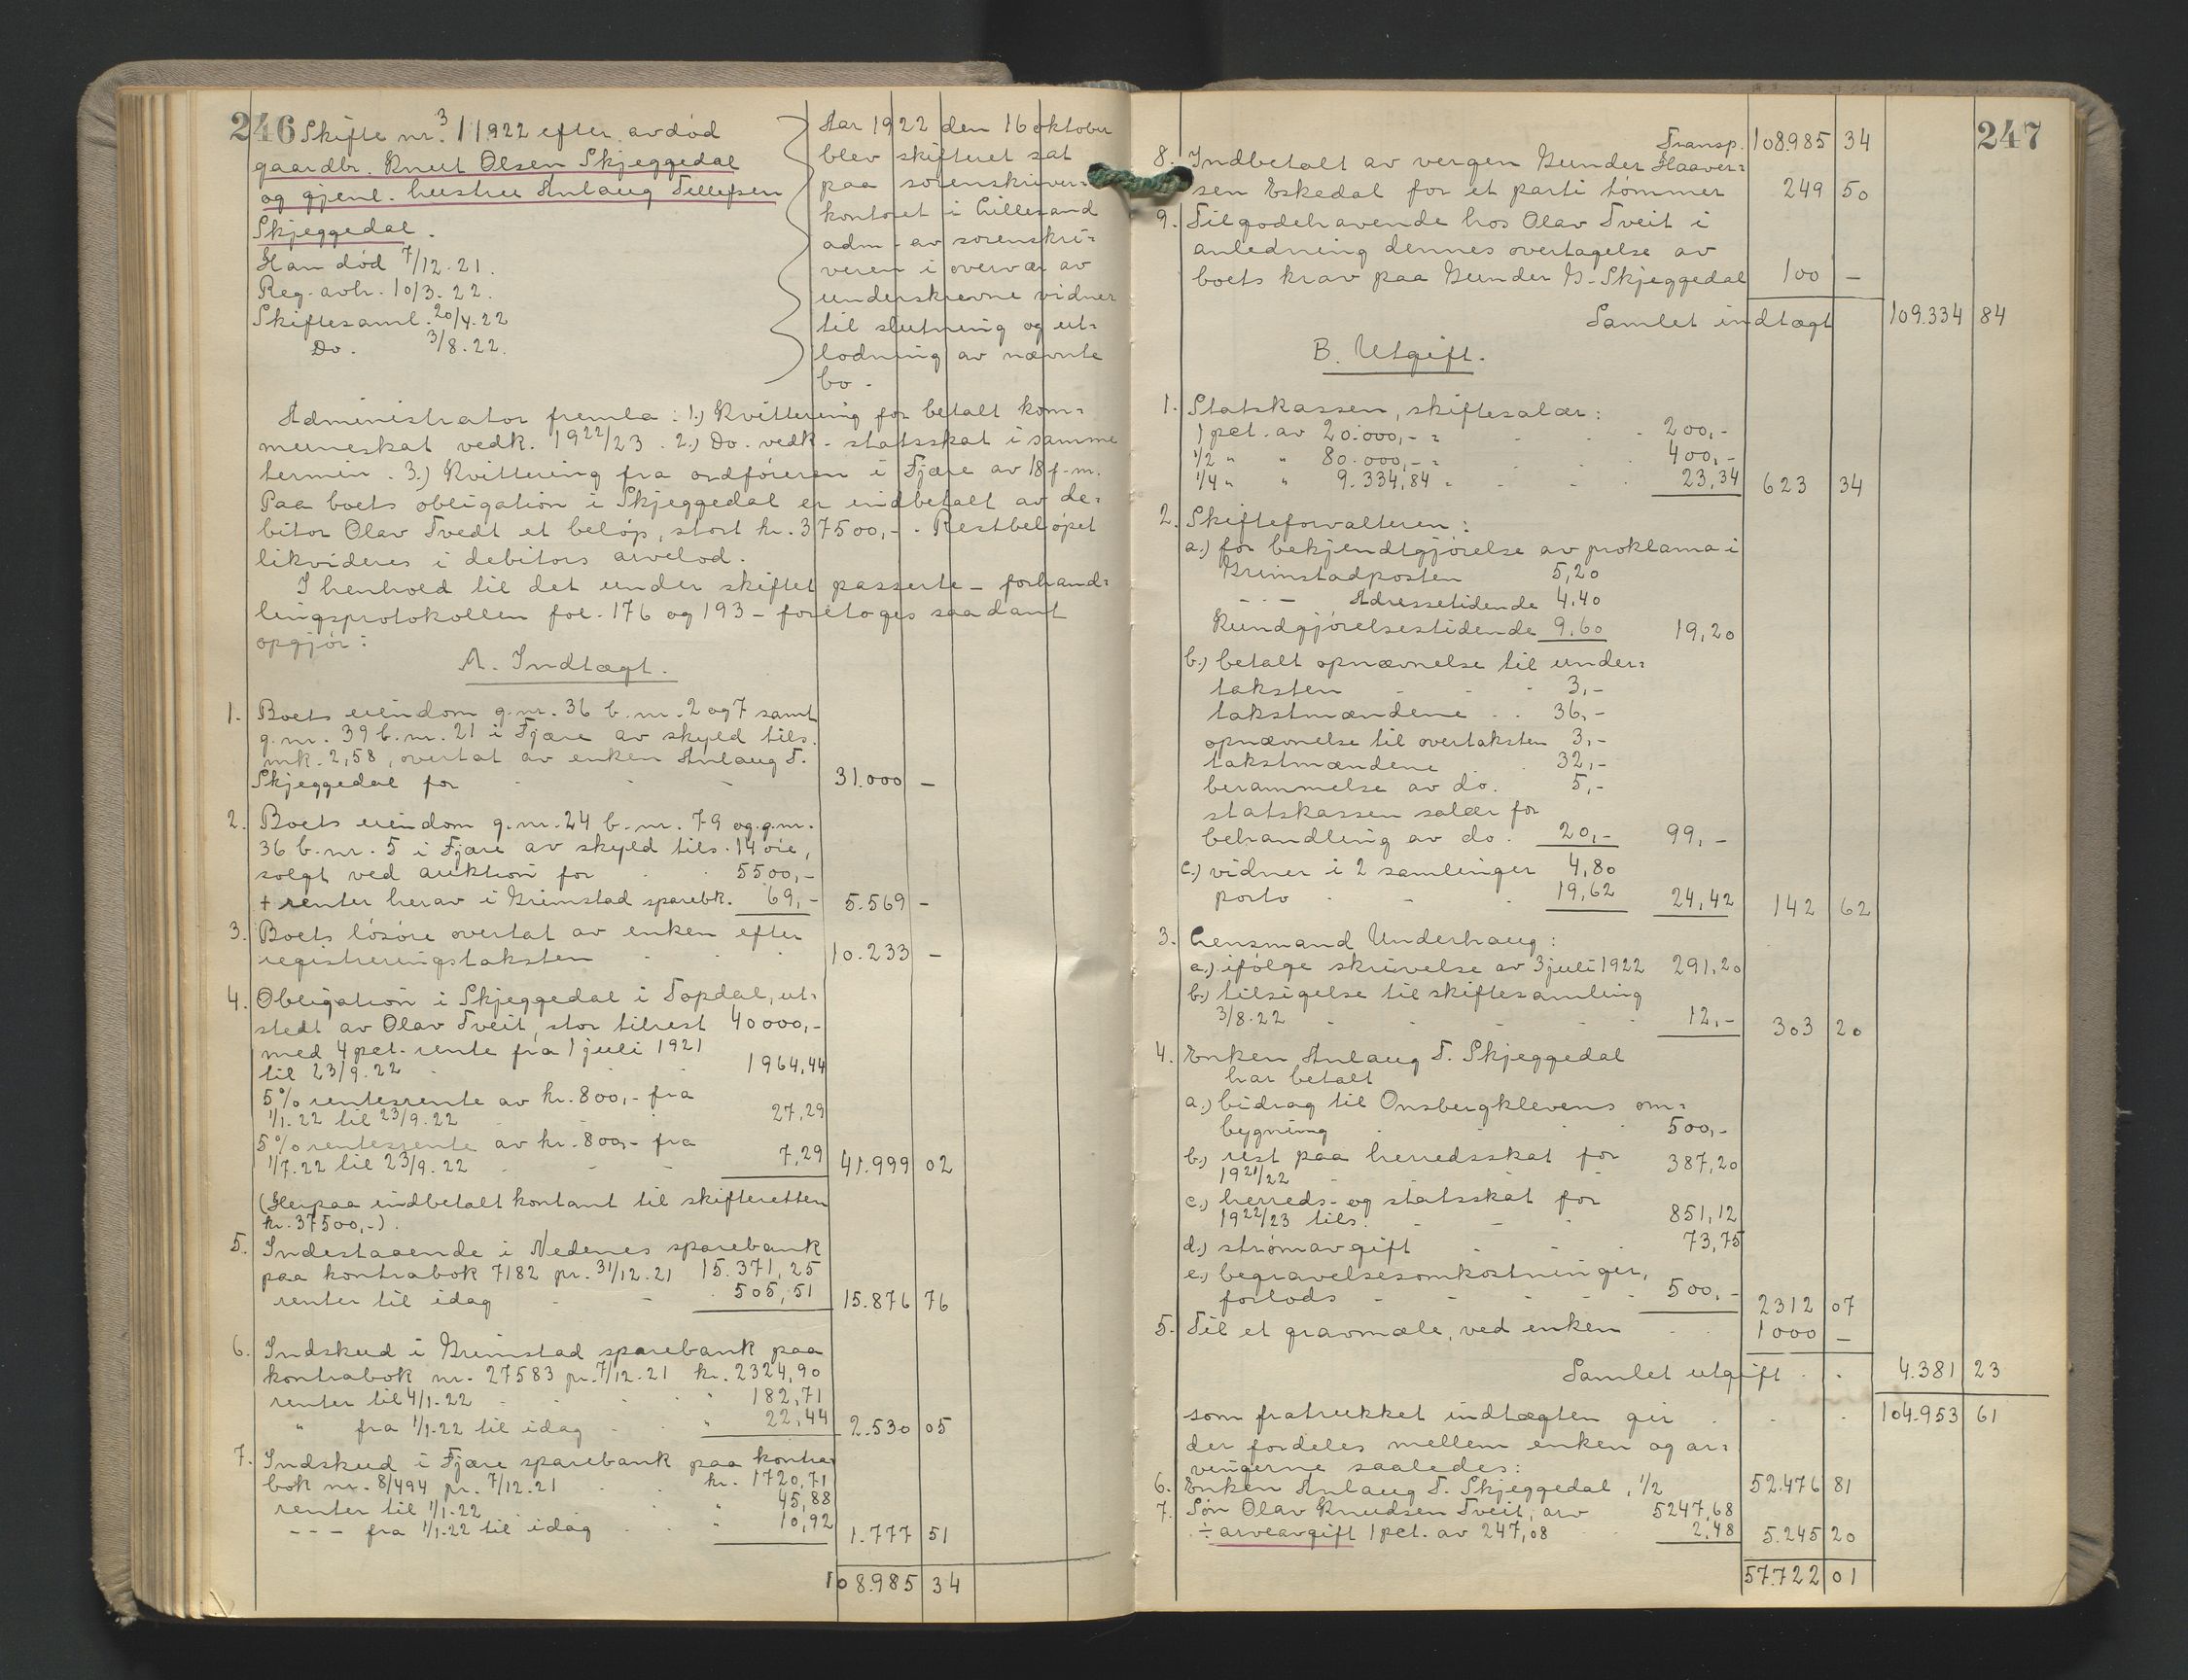 246
Skifte nr. 3/1922 efter avdød
gaardbr. Knut Olsen Skjeggedal
og gjenl. hustru Anlaug Tellefsen
Skjeggedal.
Han død 7/12-21.
Reg. avh. 10/3-22.
Skiftesaml. 20/4-22
Do. 3/8-22.
Aar 1922 den 16 oktober
blev skifteret sat
paa sorenskriver-
kontoret i Lillesand
adm. av sorenskri-
veren i overvær av
underskrevne vidner
til slutning og ut-
lodning av nævnte
bo.
Administrator fremla: 1.) Kvittering for betalt kom-
muneskat vedk. 1922/23. 2.) Do. vedk. statsskat i samme
termin. 3.) Kvittering fra ordføreren i Fjære av 18 f.m.
Paa boets obligation i Skjeggedal er indbetalt av de-
bitor Olav Tvedt et beløp, stort kr. 37500,-. Restbeløpet
likvideres i debitors arvelod.
I henhold til det under skiftet passerte - forhand-
lingsprotokollen fol. 176 og 193 - foretoges saadant
opgjør:
A. Indtægt.
1. Boets eiendom g.nr. 36 b.nr. 2 og 7 samt
g.nr. 39 b.nr. 21 i Fjære av skyld tils.
mk. 2,58, overtat av enken Anlaug T.
Skjeggedal for - - 31.000 -
2. Boets eiendom g.nr. 24 b.nr. 79 og g.nr.
36 b.nr. 5 i Fjære av skyld tils. 14 øre,
solgt ved auktion for . . 5500,-
+ renter herav i Grimstad sparebk. 69,- 5.569 -
3. Boets løsøre overtat av enken efter
registreringstaksten . . . 10.233 -
4. Obligation i Skjeggedal i Topdal, ut-
stedt av Olav Tveit, stor tilrest 40000,-
med 4 pct. rente fra 1 juli 1921
til 23/9.22 . . . 1964,44
5% rentesrente av kr. 800,- fra
1/1.22 til 23/9.22 . . 27,29
5% rentesrente av kr. 800,- fra
1/7.22 til 23/9.22 - - - 7,29 41.999 02
(Herpaa indbetalt kontant til skifteretten
kr. 37500,-).
5. Indestaaende i Nedenes sparebank
paa kontrabok 7182 pr. 31/12.21 15.371,25
renter til idag - - . 505,51 15.876 76
6. Indskud i Grimstad sparebank paa
kontrabok nr. 27583 pr. 7/12.21 kr. 2324,90
renter til 4/1-22 . . . " 182,71
" fra 1/1-22 til idag . . " 22,44 2.530 05
7. Indskud i Fjære sparebank paa kontra
bok nr. 8/494 pr. 7/12.21 . kr. 1720,71
renter til 1/1-22 . . " 45,88
--- fra 1/1-22 til idag . . " 10,92 1.777 51
108.985 34
247
Transp. 108.985 34
8. Indbetalt av vergen Gunder Haaver-
sen Eskedal for et parti tømmer 249 50
9. Tilgodehavende hos Olav Tveit i
anledning dennes overtagelse av
boets krav paa Gunder G. Skjeggedal 100 -
Samlet indtægt 109.334 84
B. Utgift.
1. Statskassen, skiftesalær:
1 pct. av 20.000,- = . . . 200,-
1/2 " " 80.000,- = . . . 400,-
1/4 " " 9.334,84 = . - . 23,34 623 34
2. Skifteforvalteren:
a.) for bekjendtgjørelse av proklama i
Grimstadposten 5,20
- - - Adressetidende 4.40
Kundgjørelsestidende 9,60 19,20
b.) betalt opnævnelse til under-
taksten - - - 3,-
takstmændene . . 36,-
opnævnelse til overtaksten 3,-
takstmændene . 32,-
berammelse av do. 5,-
statskassen salær for
behandling av do. 20,- 99,-
c.) vidner i 2 samlinger 4,80
porto . - . 19,62 24,42 142 62
3. Lensmand Underhaug:
a.) ifølge skrivelse av 3 juli 1922 291,20
b.) tilsigelse til skiftesamling
3/8-22 - - - - 12,- 303 20
4. Enken Anlaug T. Skjeggedal
har betalt
a.) bidrag til Onsbergklevens om-
bygning . . . 500,-
b.) rest paa herredsskat for
1921/22 - - - 387,20
c.) herreds- og statsskat for
1922/23 tils. - - - 851,12
d.) strømavgift - - - 73,75
e.) begravelsesomkostninger,
forlods - - - - 500,- 2312 07
5. Til et gravmæle, ved enken . . 1000 -
Samlet utgift . . 4.381 23
som fratrukket indtægten gir . . . 104.953 61
der fordeles mellem enken og ar-
vingerne saaledes:
6. Enken Anlaug T. Skjeggedal, 1/2 52.476 81
7. Søn Olav Knudsen Tveit, arv 5247,68
÷ arveavgift 1 pct. av 247,08 2,48 5.245 20
57.722 01